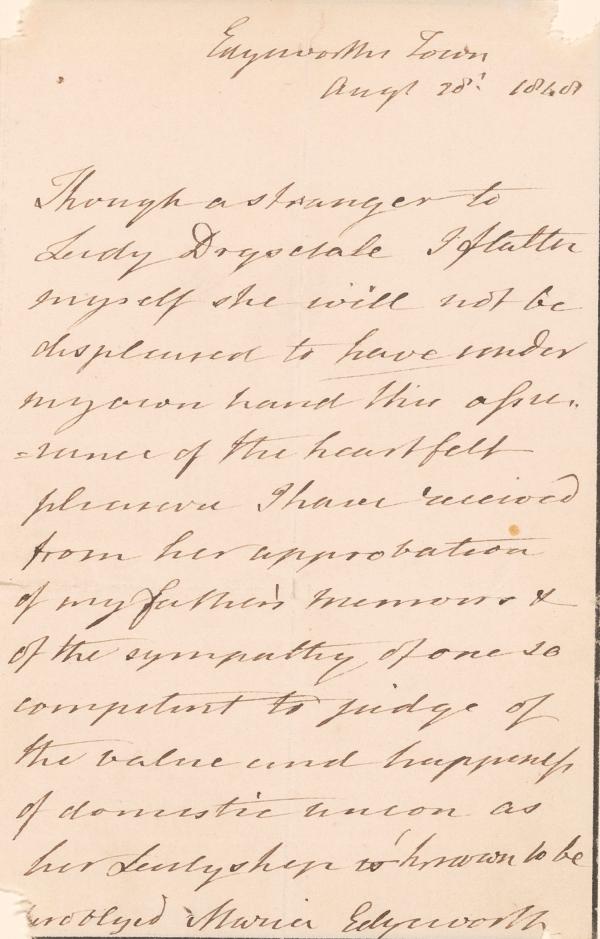 Edgeworths Town
Augt 28t 1848
Though a stranger to
Lady Drysdale I flatter
myself she will not be
displeased to have under
my own hand this assu-
=rance of the heartfelt
pleasure I have received
from her approbation
of my father's memoirs &
of the sympathy of one so
competent to judge of
the value and happiness
of domestic union as
her Ladyship is known to be
obliged Maria Edgeworth